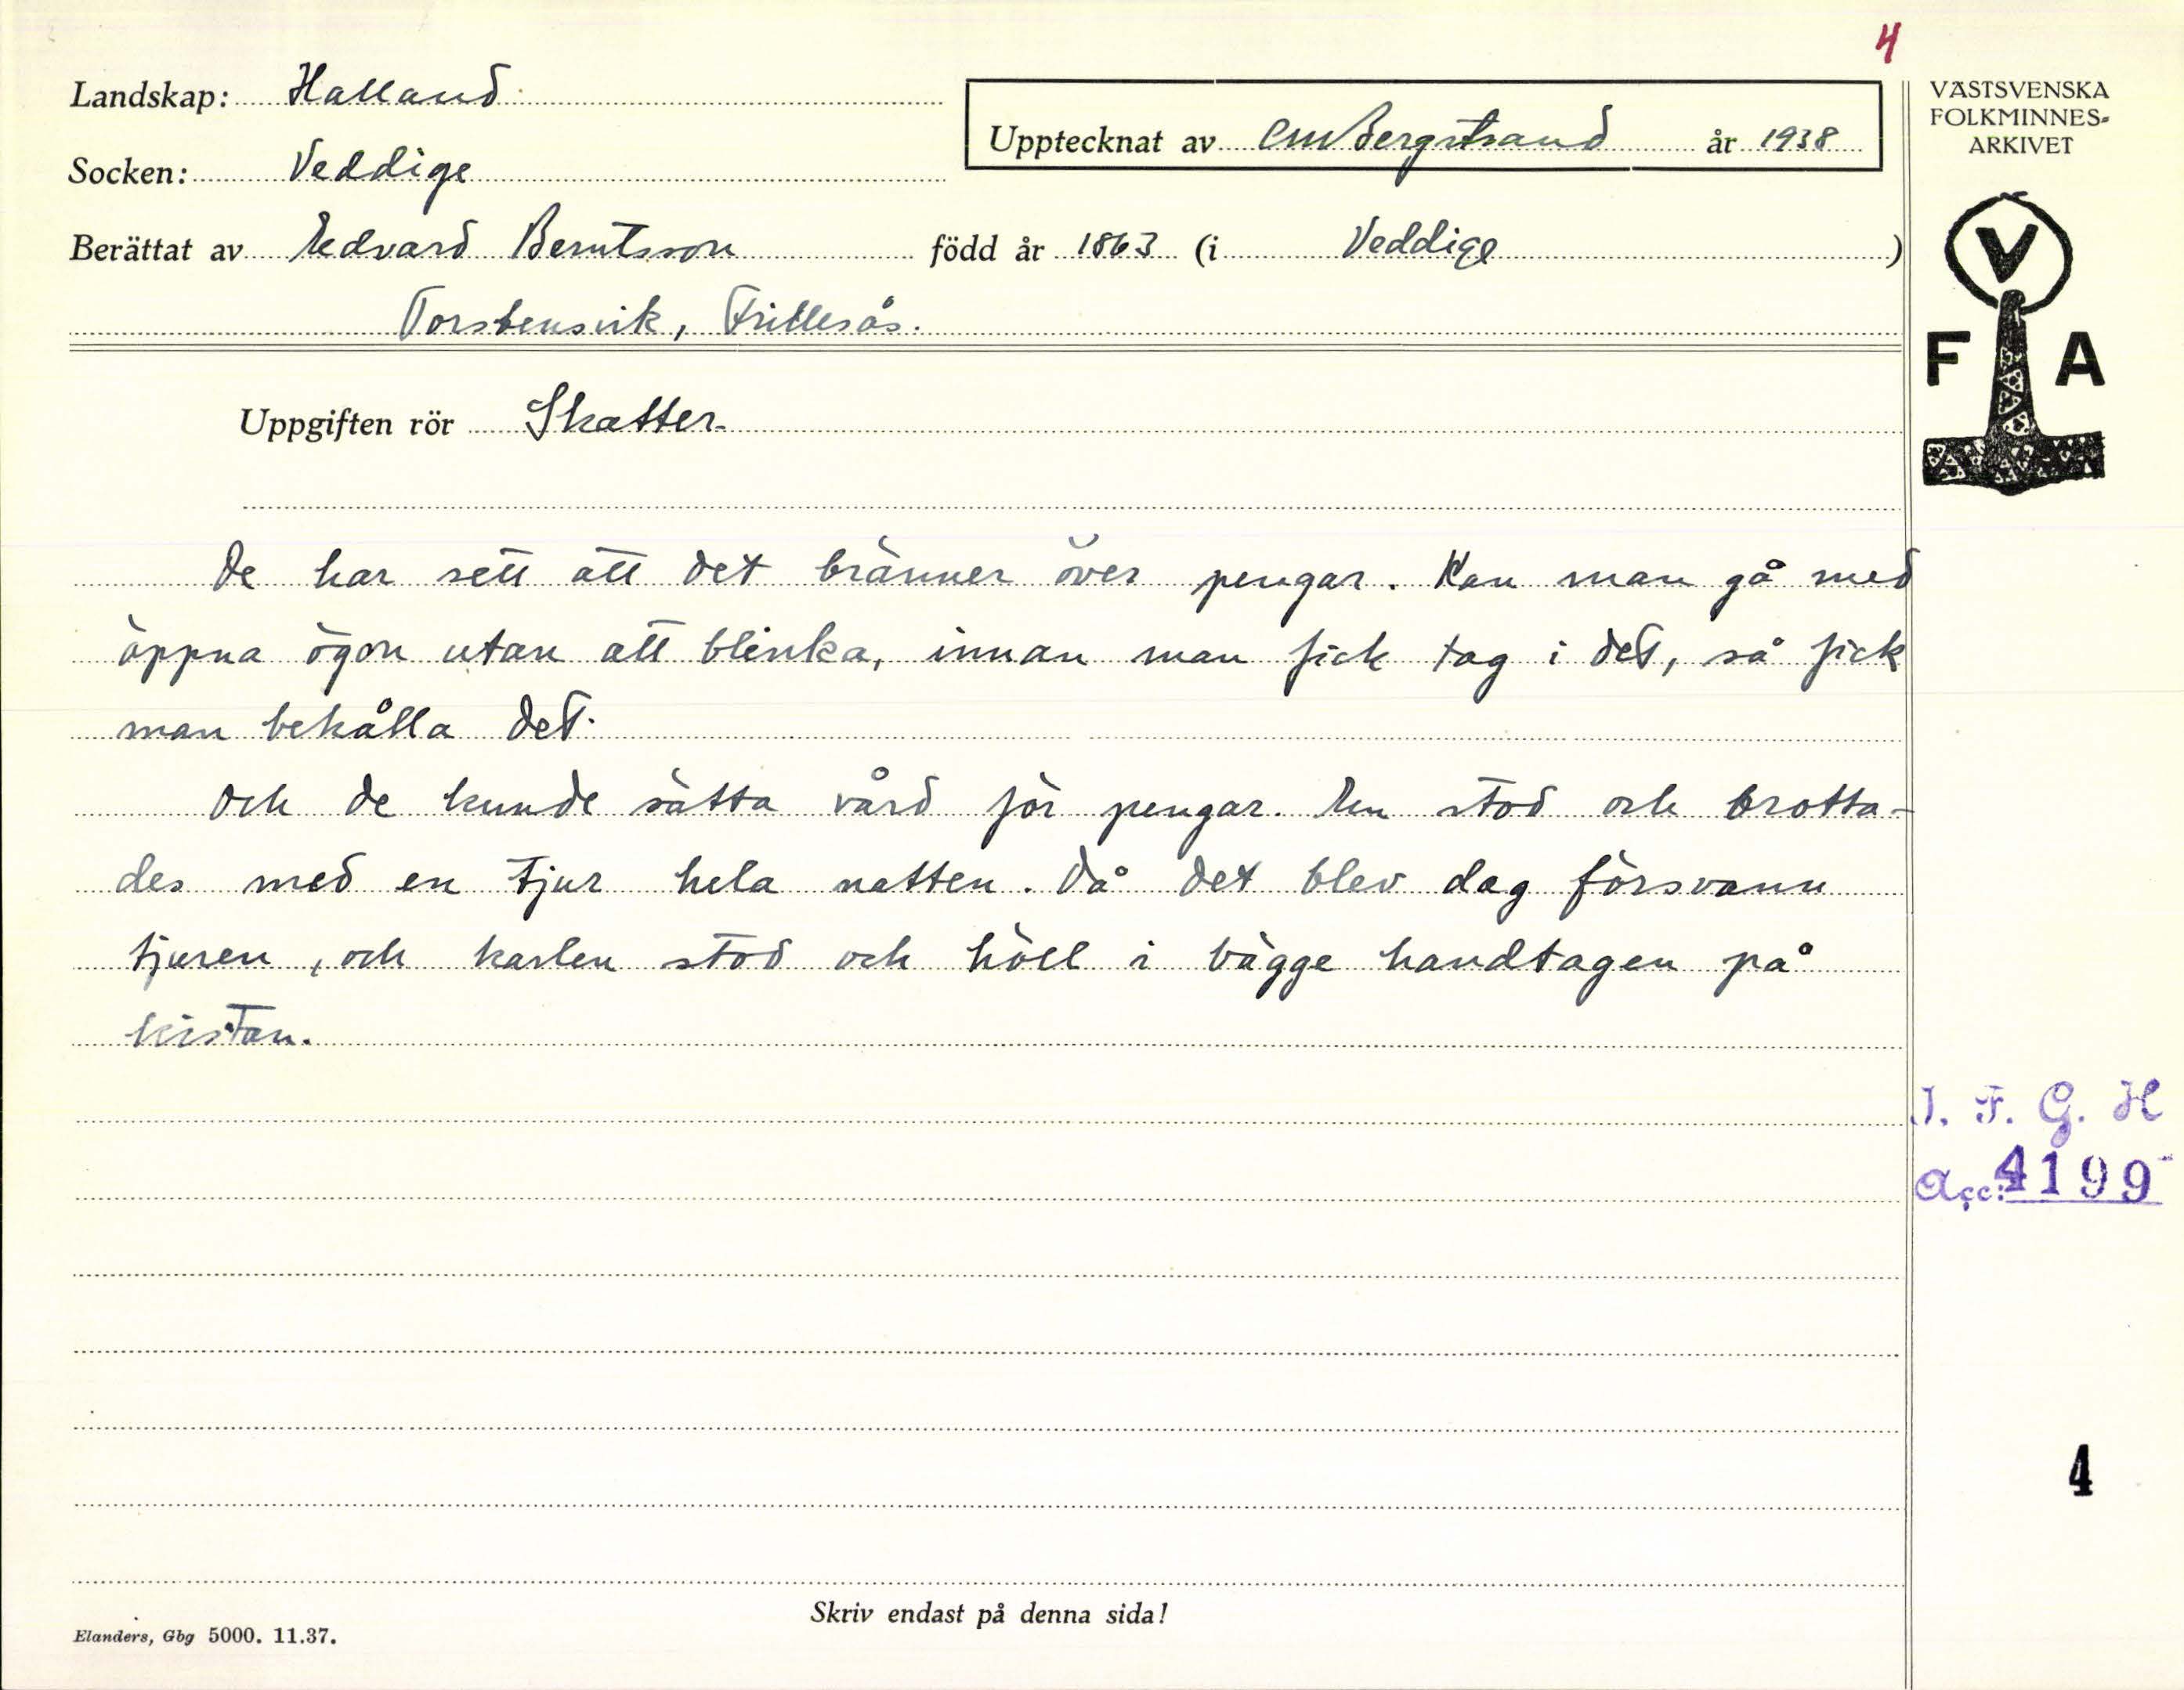 4
Landskap: Halland
Upptecknat av CM Bergstrand år 1938
Socken: Veddige
Berättat av Edvard Berntsson född år 1863 (i Veddige)
Torstensvik, Frillesås.
VÄSTSVENSKA
FOLKMINNES-
ARKIVET
V
F A
Uppgiften rör Skatter.
De har sett att det bränner över pengar. Kan man gå med
öppna ögon utan att blinka, innan man fick tag i det, så fick
man behålla det.
Och de kunde sätta vård för pengar. En stod och brotta-
des med en tjur hela natten. Då det blev dag försvann
tjuren, och karlen stod och höll i bägge handtagen på
kistan.
I. F. G. H
Acc: 4199
4
Skriv endast på denna sida!
Elanders, Gbg 5000. 11.37.